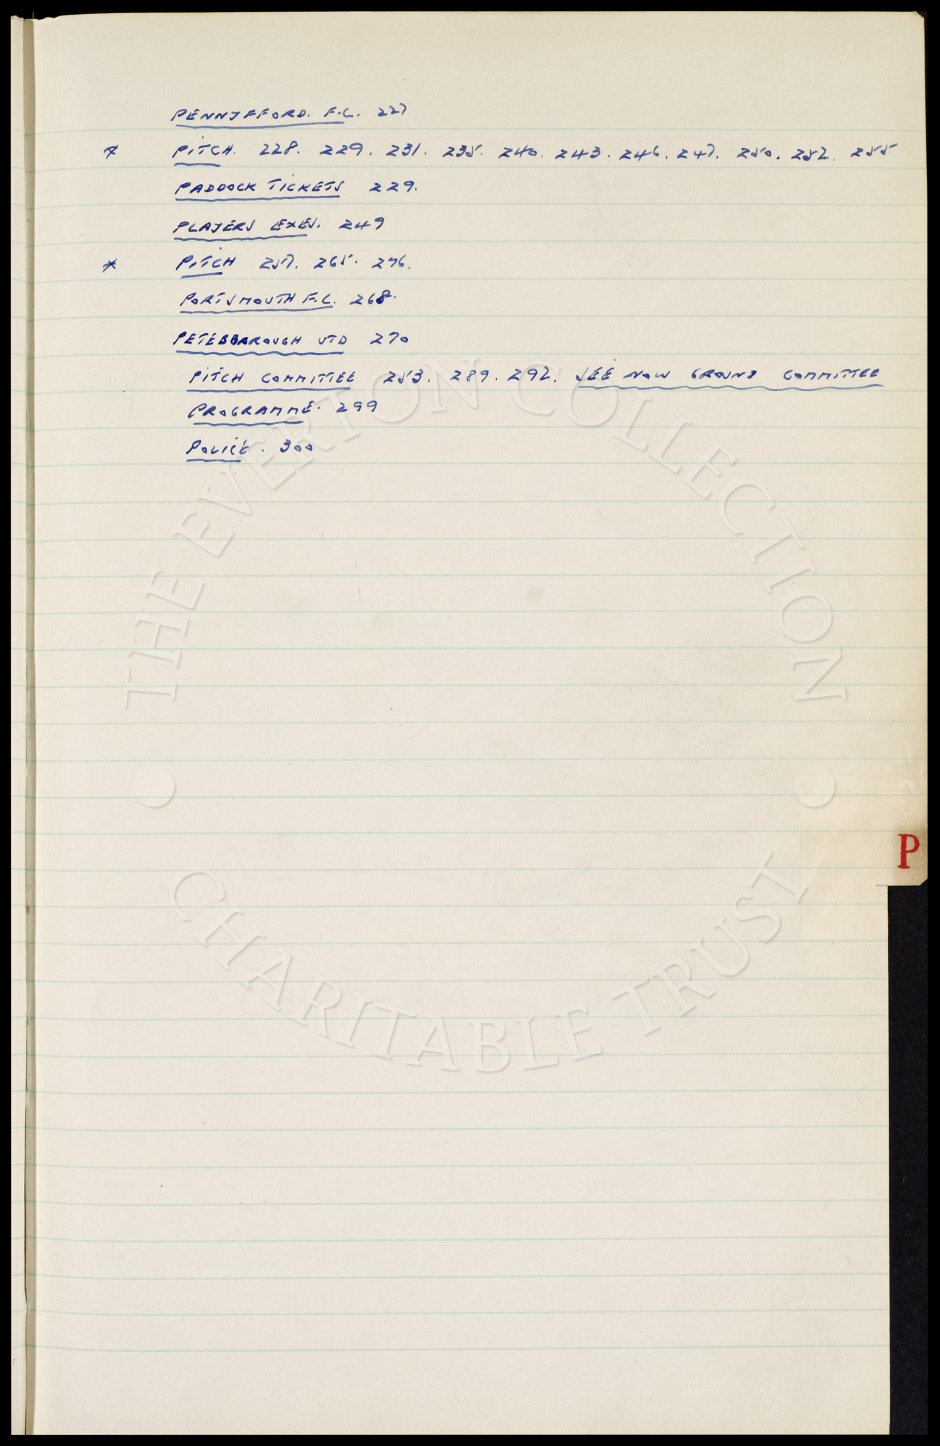 PENNYFFORD. F.C. 227
* PITCH. 228. 229. 231. 235. 240. 243. 246. 247. 250. 252. 255
PADDOCK TICKETS 229.
PLAYERS EXES. 249
* PITCH 257. 265. 276.
PORTSMOUTH F.C. 268.
PETEBBAROUGH UTD 270
PITCH COMMITTEE 253. 289. 292. SEE NOW GROUND COMMITTEE
PROGRAMME. 299
POLICE. 300
THE EVERTON COLLECTION
P
CHARITABLE TRUST